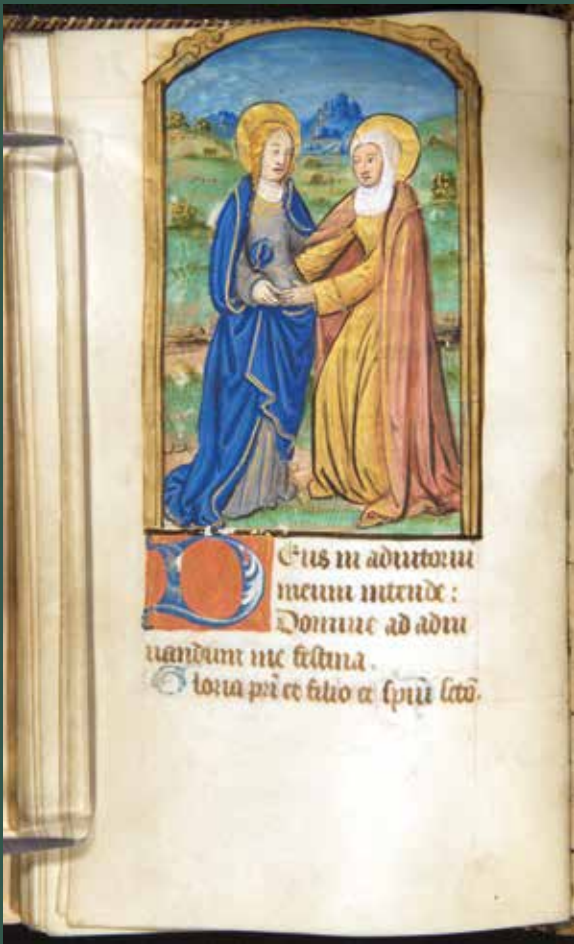 Deus in adiutoriu
meum intende :
Domine ad adiu
uandum me festina .
Gloria pri et filio et spui scto .